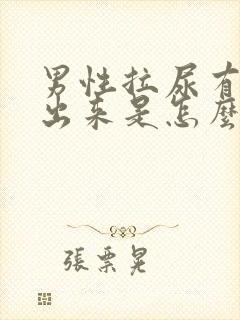 男性拉尿有
出来是怎麼
張票晃